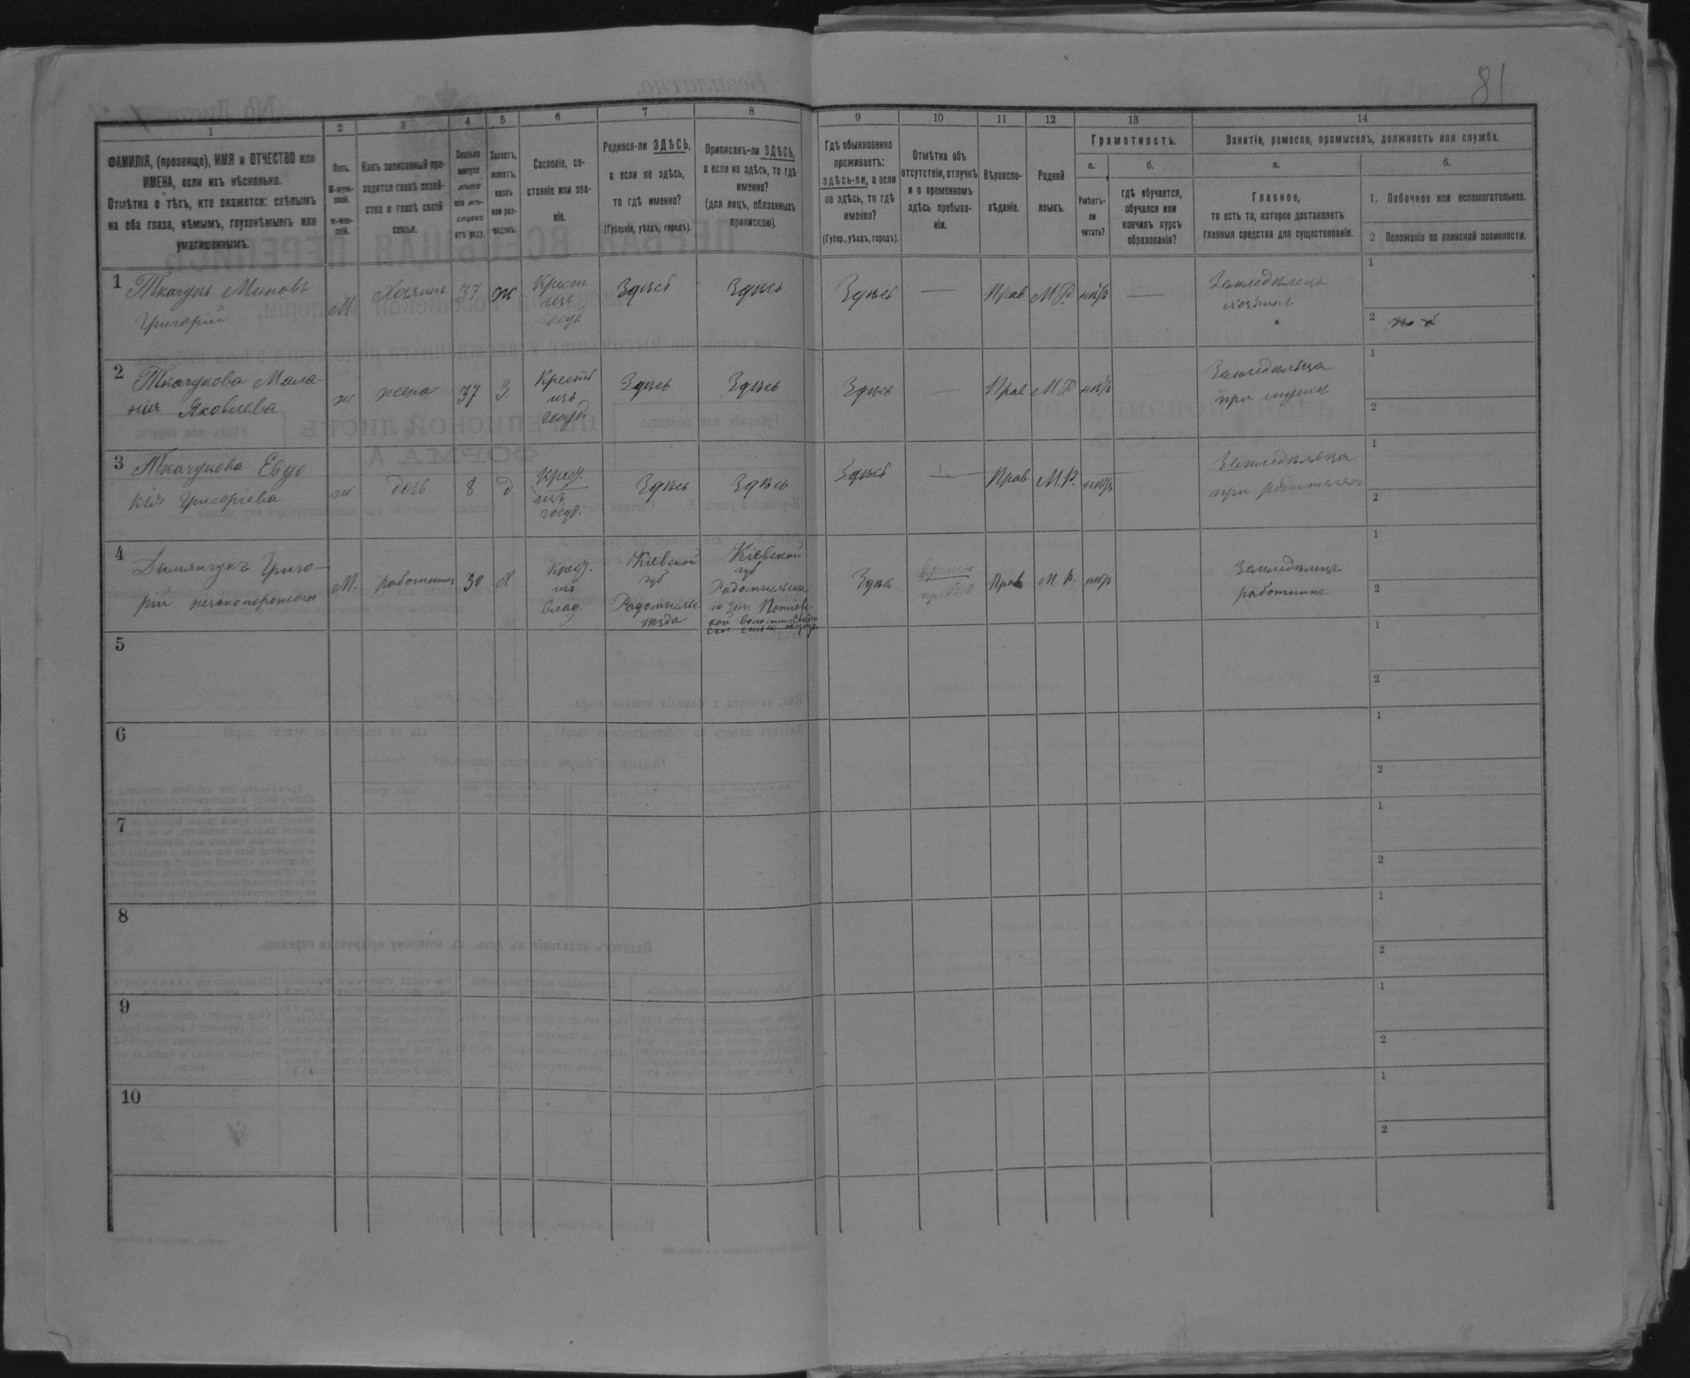 81
1
2
3
4
5
6
7
8
9
10
11
12
13
14
ФАМИЛІЯ, (прозвище), ИМЯ и ОТЧЕСТВО или
ИМЕНА, если ихъ нѣсколько.
Отмѣтка о тѣхъ, кто окажется: слѣпымъ
на оба глаза, нѣмымъ, глухонѣмымъ или
умалишеннымъ.
Полъ.
М-муж-
ской.
Ж-жен-
ской.
Какъ записанный при-
ходится главѣ хозяй-
ства и главѣ своей
семьи.
Сколько
минуло
лѣтъ
или мѣ-
сяцевъ
отъ роду.
Холостъ,
женатъ,
вдовъ
или раз-
веденъ.
Сословіе, со-
стояніе или зва-
ніе.
Родился-ли ЗДѢСЬ,
а если не здѣсь,
то гдѣ именно?
(Губернія, уѣздъ, городъ).
Приписанъ-ли ЗДѢСЬ,
а если не здѣсь, то гдѣ
именно?
(для лицъ, обязанныхъ
припискою).
Гдѣ обыкновенно
проживаетъ:
здѣсь-ли, а если
не здѣсь, то гдѣ
именно?
(Губер., уѣздъ, городъ).
Отмѣтка объ
отсутствіи, отлучкѣ
и о временномъ
здѣсь пребыва-
ніи.
Вѣроиспо-
вѣданіе.
Родной
языкъ.
Грамотность.
а.
б.
Умѣетъ-
ли
читать?
гдѣ обучается,
обучался или
кончилъ курсъ
образованія?
Занятіе, ремесло, промыселъ, должность или служба.
а.
б.
Главное,
то есть то, которое доставляетъ
главныя средства для существованія.
1. Побочное или вспомогательное.
2 Положеніе по воинской повинности.
1 Ткачукъ Миновъ
Григорій
М. Хозяинъ 37 ж
Крест.
изъ
госуд
Здѣсь Здѣсь Здѣсь — Прав М.Р. нѣтъ —
Земледѣлецъ
хозяинъ
1
2
2 Ткачукова Мала-
нія Яковлева
ж жена 37 З.
Крест
изъ
госуд.
Здѣсь Здѣсь Здѣсь — Прав М.Р. нѣтъ
Земледѣлица
при мужѣ
1
2
3 Ткачукова Евдо
кія Григорьева
ж дочь 8 д
Крест.
изъ
госуд.
Здѣсь Здѣсь Здѣсь — Прав. М.Р. нѣтъ
Земледѣлица
при родителяхъ
1
2
4 Демянчукъ Григо-
рій незаконорожден
М. работникъ 30 Х
Крест.
изъ
влад
Кіевской
губ
Радомысльс
уѣзда
Кіевской
губ
Радомысльска
го
Здѣсь
времен
преб
Прав М.Р. нѣтъ
Земледѣлецъ
работникъ
1
2
5
1
2
6
1
2
7
1
2
8
1
2
9
1
2
10
1
2